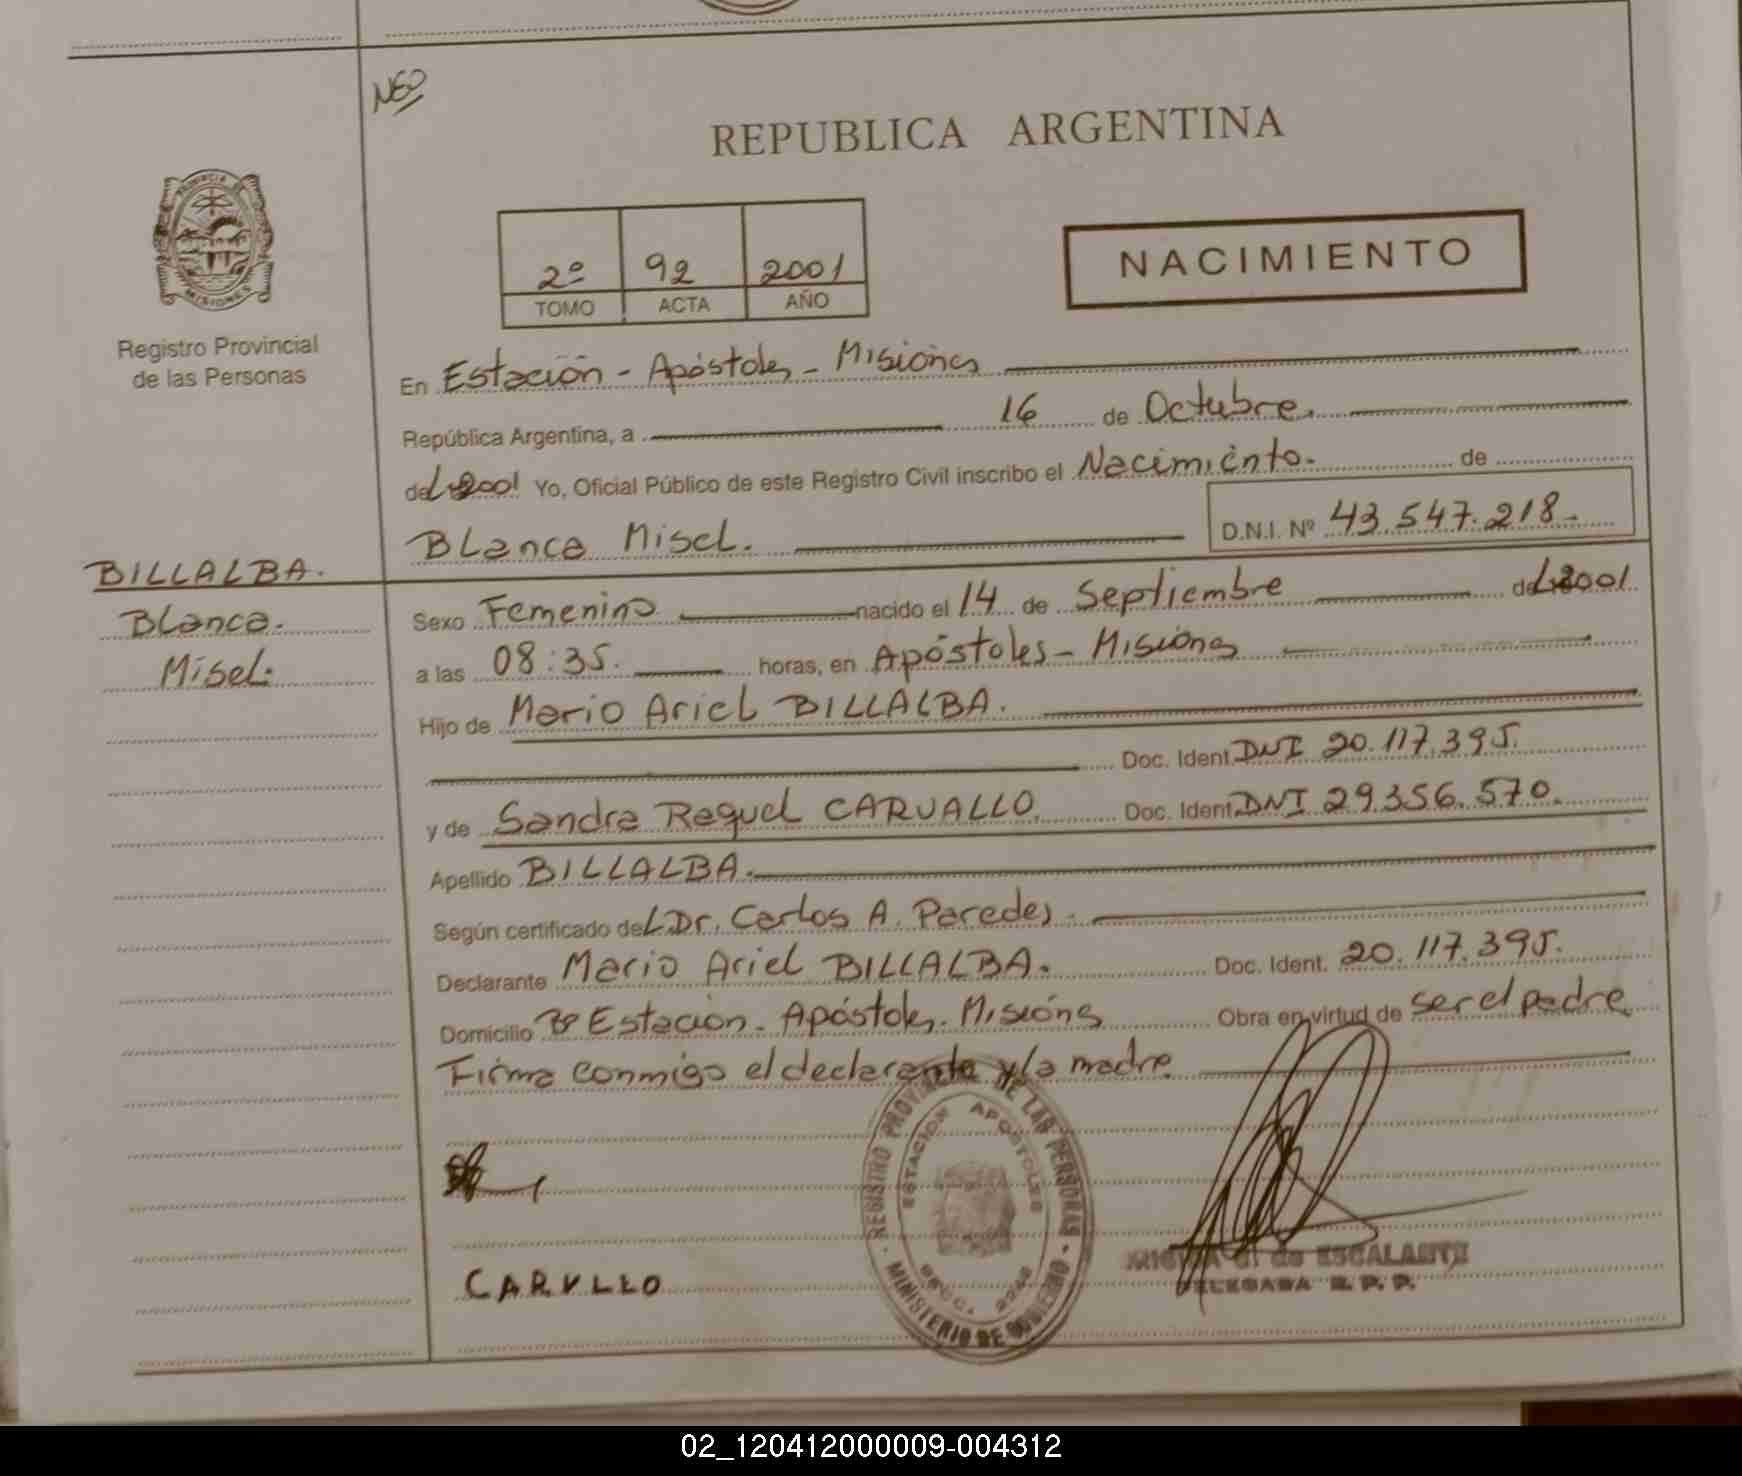 NEO
REPUBLICA ARGENTINA
2º 92 2001
TOMO ACTA AÑO
NACIMIENTO
PROVINCIA DE MISIONES
Registro Provincial
de las Personas
En Estación - Apóstoles - Misiones
República Argentina, a 16 de Octubre.
del 2001 Yo, Oficial Público de este Registro Civil inscribo el Nacimiento. de
Blanca Misel. D.N.I. Nº 43.547.218.-
BILLALBA.
Blanca.
Misel.
Sexo Femenino nacido el 14 de Septiembre del 2001
a las 08:35. horas, en Apóstoles - Misiones
Hijo de Mario Ariel BILLALBA.
Doc. Ident. DNI 20.117.395.
y de Sandra Raquel CARVALLO. Doc. Ident. DNI 29.356.570.
Apellido BILLALBA.
Según certificado del Dr. Carlos A. Paredes.
Declarante Mario Ariel BILLALBA. Doc. Ident. 20.117.395.
Domicilio Bº Estación - Apóstoles. Misiones Obra en virtud de ser el padre
Firma conmigo el declarante y la madre
REGISTRO PROVINCIAL DE LAS PERSONAS
ESTACION APOSTOLES
MINISTERIO DE GOBIERNO
CARVLLO
de ESCALANTE
DELEGADA R. P. P.
02_120412000009-004312